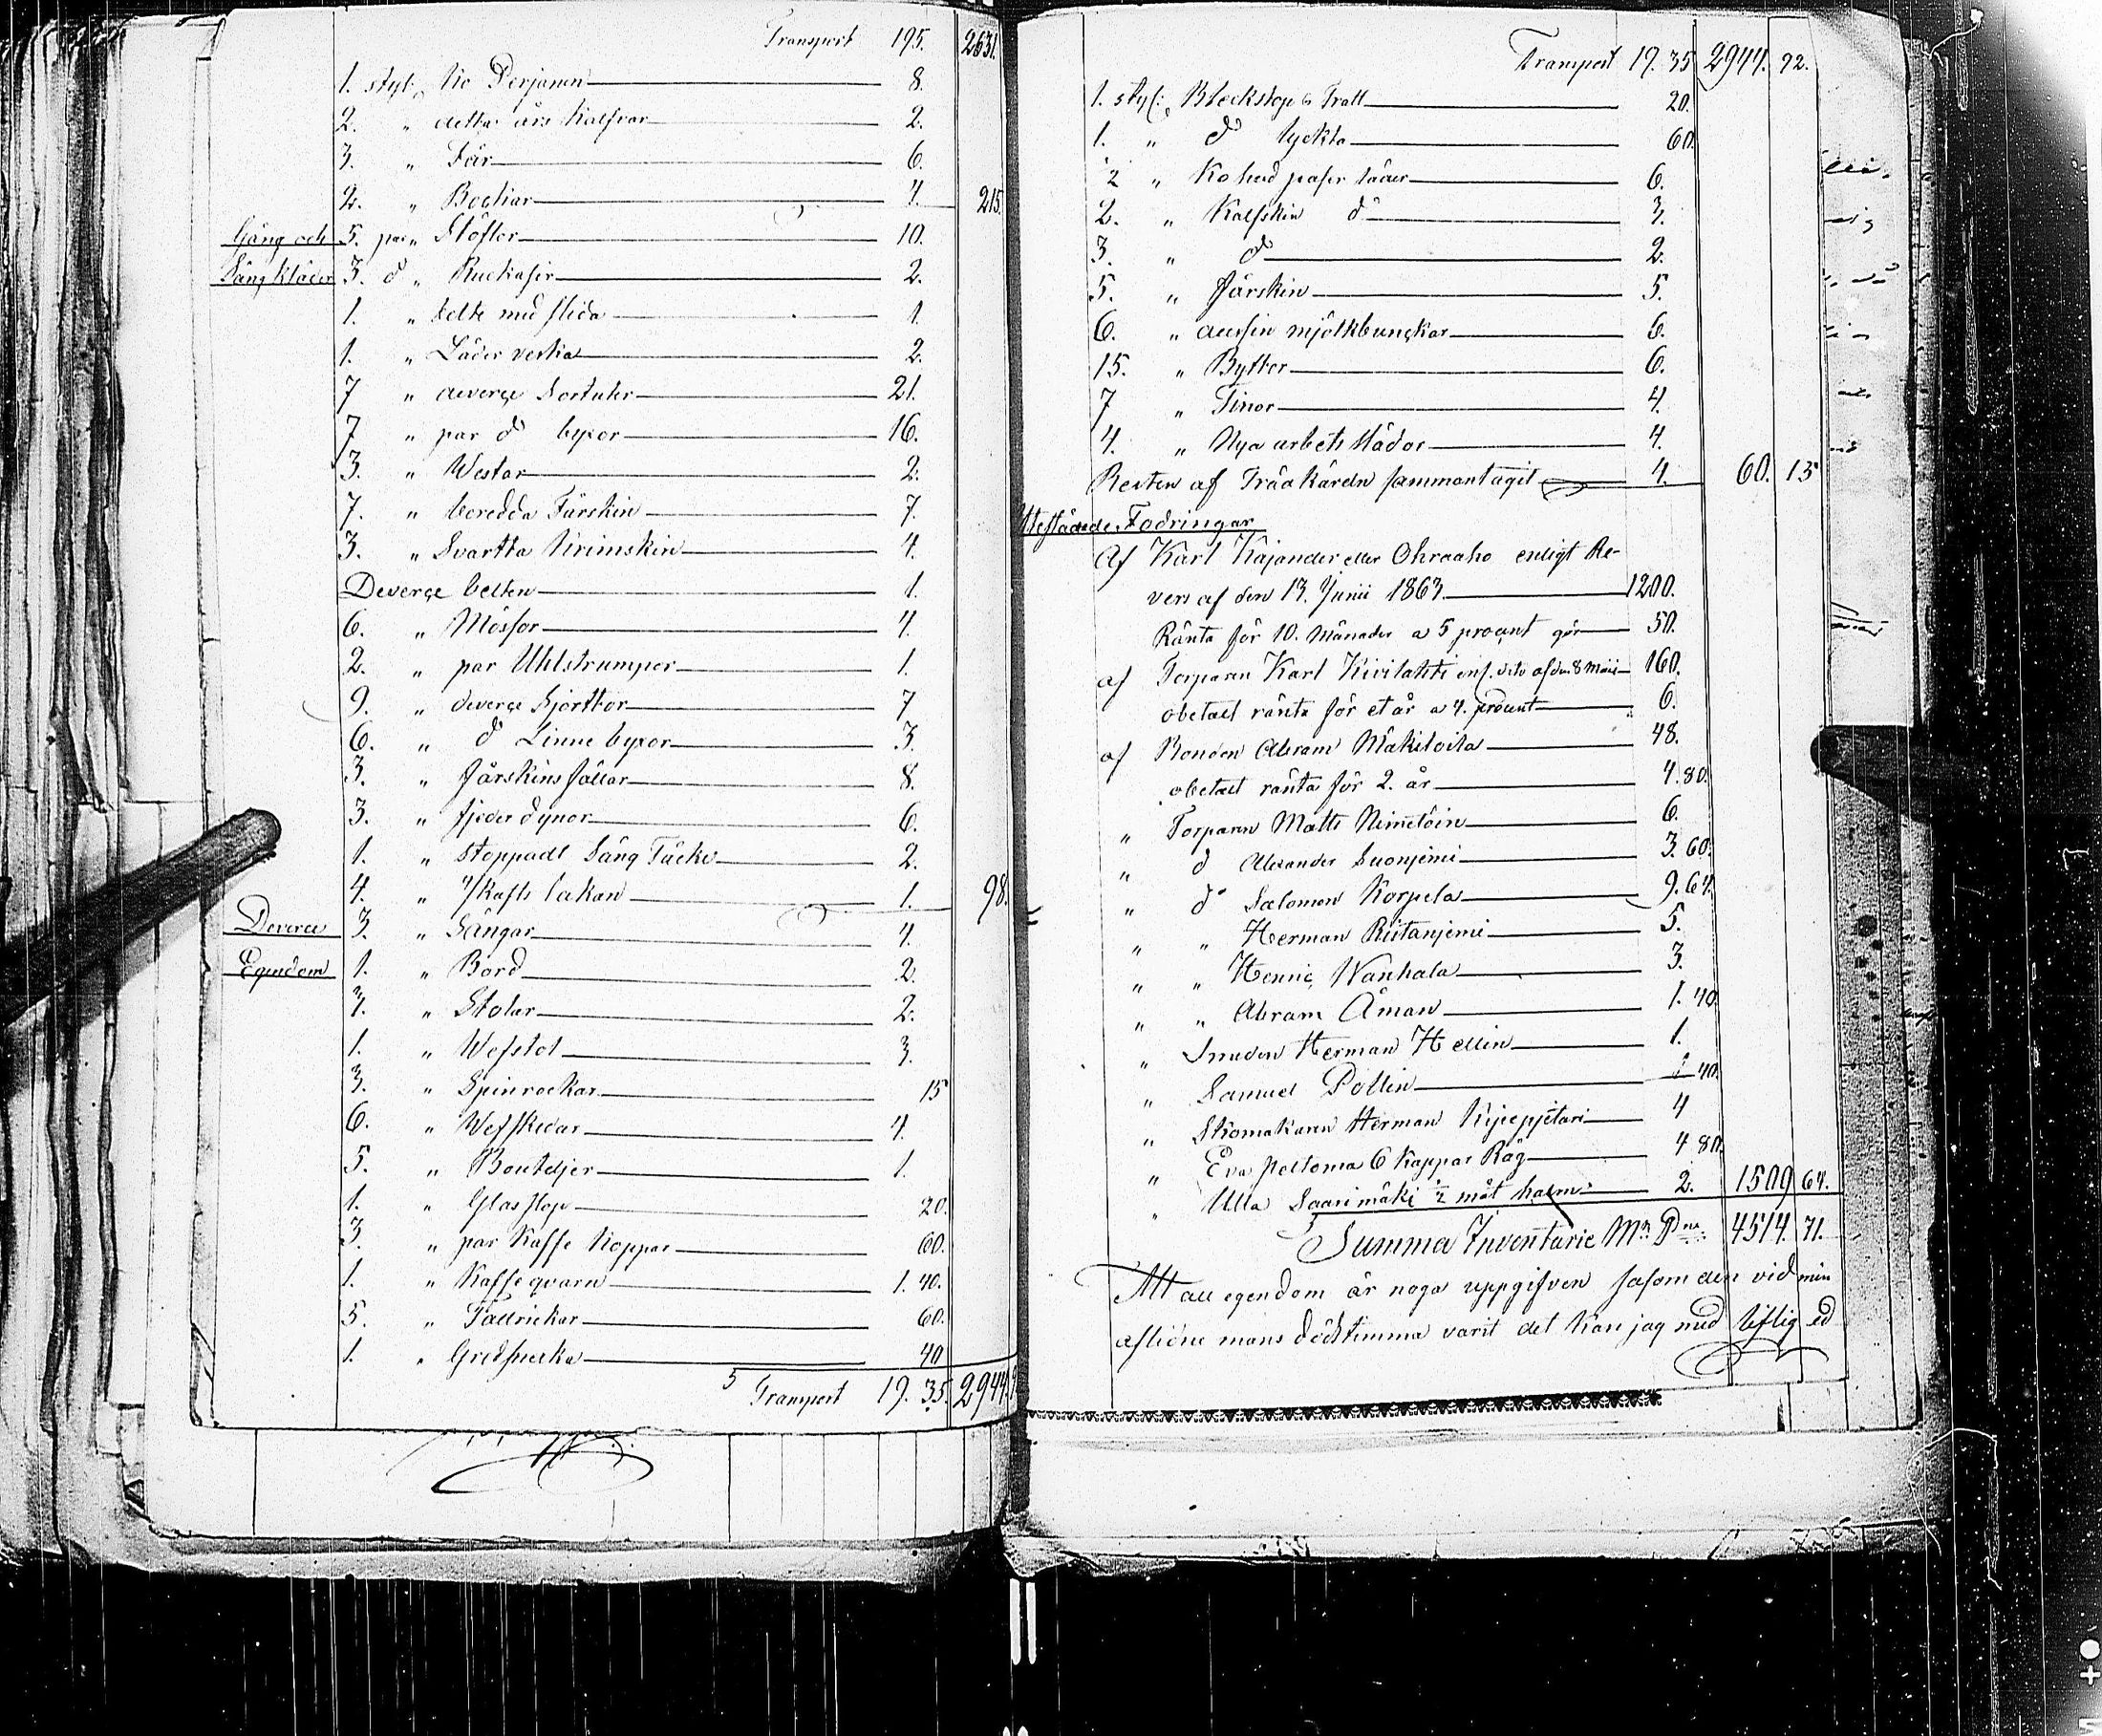 Transport 195. 2631.
1. styk: Kio Derjämn 8.
2. " detta års Kalfvar 2.
3. " Får 6.
2. " Bockar 4. 215.
Gång och 5. par " Stöflor 10.
Sängkläder 3. d " 2.
1. " belte med slida 1.
1. " Läder veska 2.
7 " diverçe Sortuter 21.
7 " par do byxor 16.
3. " Westar 2.
7. " beredda Fårskin 7.
3. " Svartta Krimskin 4.
Deverçe belten 1.
6. " Mössor 4.
2. " par Ullstrumpor 1.
9. " deverçe Skjorttor 7
6. " d Linne byxor 3.
3. " fårskins fällar 8.
3. " fjeder dynor 6.
1. " stoppadt Säng Täcke 2.
4. " lakan 1. 98.
Deverce 3. " Sängar 4.
Egendom 1. " Bord 2.
7. " Stolar 2.
1. " Wefstol 3.
3. " Spinrockar 15
6. " Wefskedar 4.
5. " Bouteljer 1.
1. " Glas stop 20.
3. " par Kaffe Koppar 60.
1. " Kaffe qvarn 1. 40.
5. " Tallrickar 60.
1. " 40
5 Transport 19. 35. 2944.
Transport 19. 35 2944. 92.
1. styk: Bleckstop o Tratt 20.
1. " d lyckta 60.
2 " Ko hud läder 6.
2. " Kalfskin do 3.
3. " d 2.
5. " fårskin 5.
6. " dussin mjölkbunckar 6.
15. " Byttor 6.
7 " Tinor 4.
4. " Nya arbets slädor 4.
Resten af Träkäreln sammantagit 4. 60. 15
Utestående Fodringar
Af Karl Kajander eller Ohraaho enligt Re-
vers af den 13. Junii 1863 1200.
Ränta för 10. Månader a 5 procent gör 50.
af Torparen Karl Kivilahti enl. dito af den 8 Maii 160.
obetalt ränta för et år a 4. procent 6.
af Bonden Abram Mäkitoila 48.
obetalt ränta för 2. år 4. 80.
" Torparen Matts Nimetöin 6.
" d Alexander Suonjemi 3. 60.
" do Salomon Korpela 9. 64.
" " Herman Riitanjemi 5.
" " Henric Wanhala 3.
" " Abram Åman 1. 40.
" Smeden Herman Hellin 1.
" Samuel Pollin 40.
" Skomakaren Herman 4
" Eva Peltoma 6 Kappar Råg 4 80.
" Ulla Saarimäki ½ måt halm 2. 1509 64.
Summa Inventarie Mk Pni 4514. 71.
Att all egendom är noga uppgifven såsom den vid min
aflidne mans dödstimma varit det kan jag med liflig ed